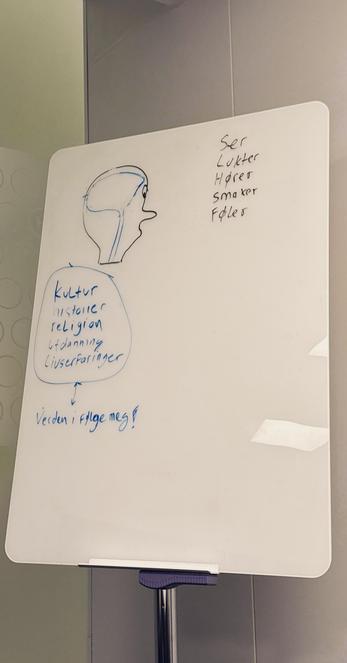 Ser
Lukter
Hører
Smaker
Føler
Kultur
historier
religion
utdanning
Livserfaringer
Verden i følge meg!